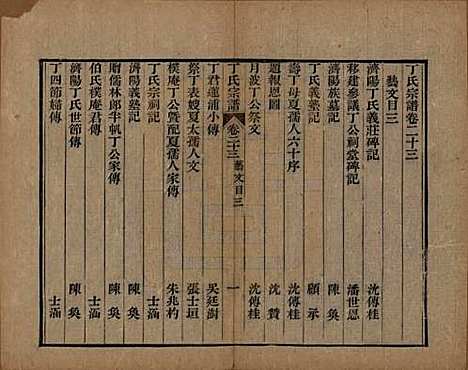 丁氏宗譜卷二十三
藝文目三
濟陽丁氏義莊碑記 沈傳桂
移建參議丁公祠堂碑記 潘世恩
濟陽族墓記 陳奐
丁氏義塾記 顧承
壽丁母夏孺人六十序 沈傳桂
題報恩圖 沈贊
月波丁公祭文 沈傳桂
丁氏宗譜 卷二十三 藝文目三 一
丁君蓮浦小傳 吳廷澍
祭丁表嫂夏太孺人文 張士垣
樸庵丁公暨配夏孺人家傳 朱兆杓
丁氏宗祠記 士涵
濟陽義塾記 陳奐
贈儒林郎半帆丁公家傳 陳奐
伯氏樸庵君傳 士涵
濟陽丁氏世節傳 陳奐
丁四節婦傳 士涵